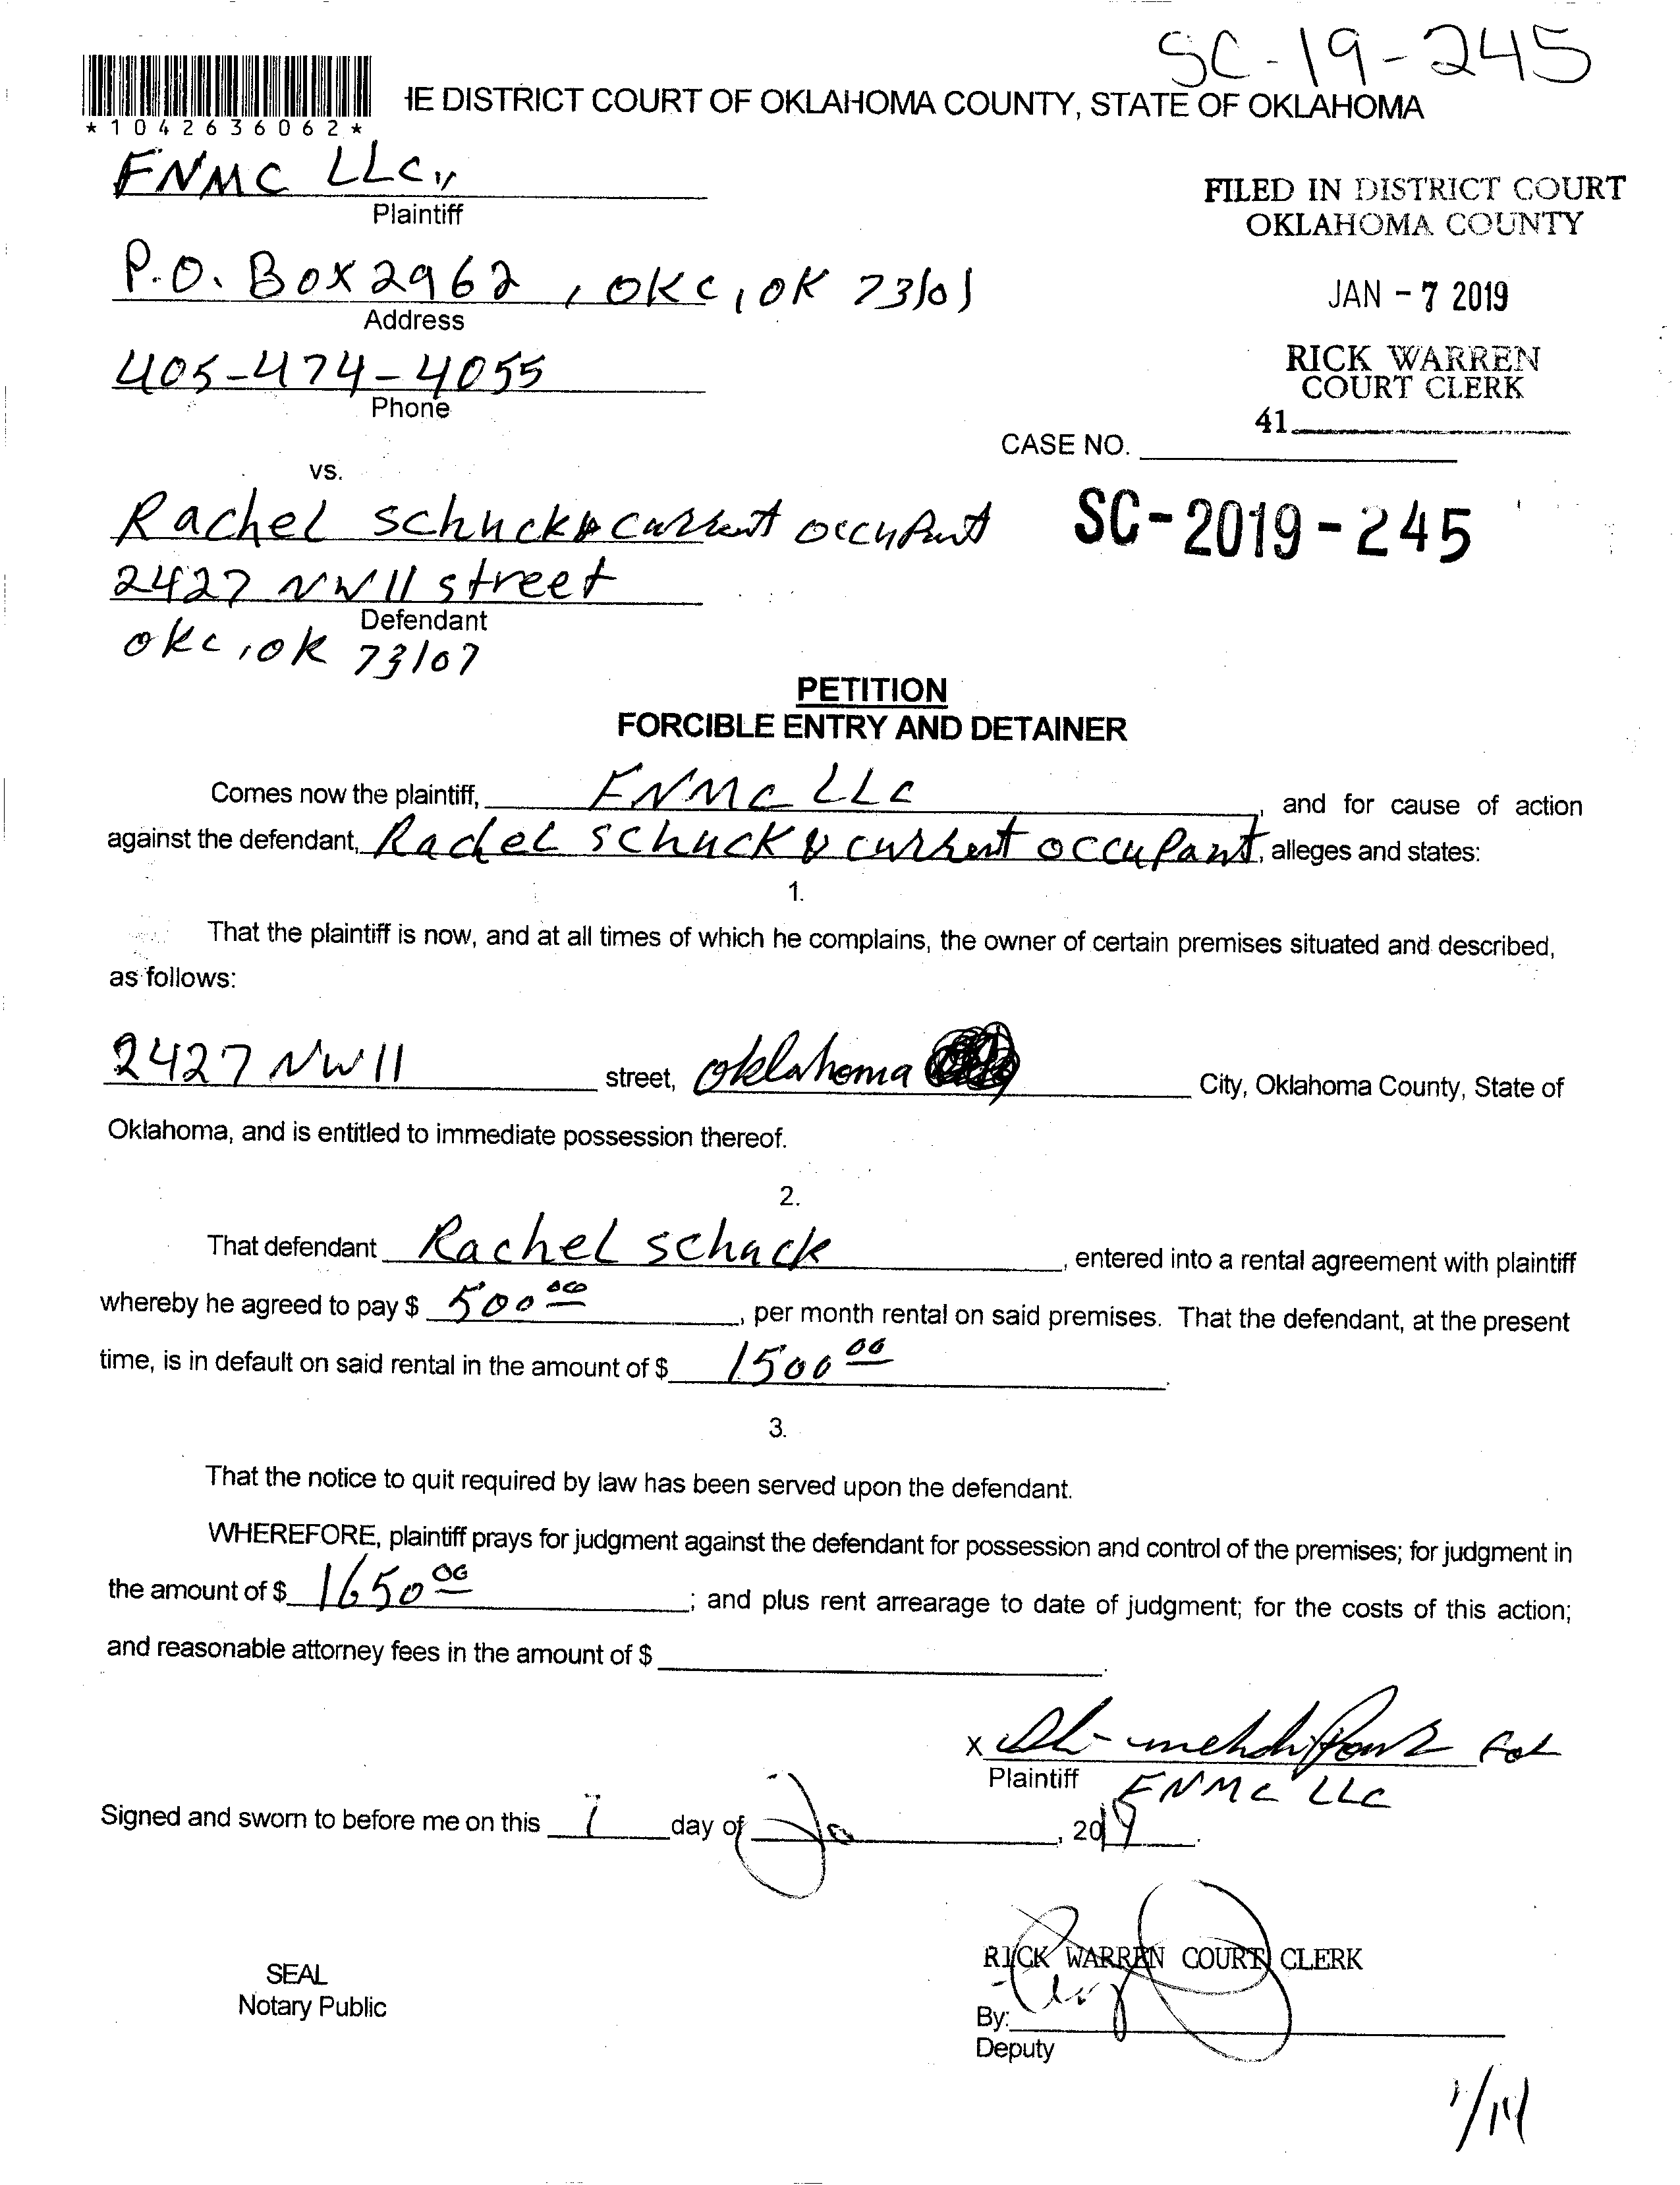 SC-19-245
*1042636062*
HE DISTRICT COURT OF OKLAHOMA COUNTY, STATE OF OKLAHOMA
FNMC LLC,
Plaintiff
FILED IN DISTRICT COURT
OKLAHOMA COUNTY
P.O. Box 2962, OKC, OK 73101
Address
JAN - 7 2019
405-474-4055
Phone
RICK WARREN
COURT CLERK
41
CASE NO.
vs.
Rachel schuck & current occupant
SC-2019-245
2427 NW 11 street
Defendant
okc, ok 73107
PETITION
FORCIBLE ENTRY AND DETAINER
Comes now the plaintiff, FNMC LLC, and for cause of action
against the defendant, Rachel schuck & current occupant, alleges and states:
1.
That the plaintiff is now, and at all times of which he complains, the owner of certain premises situated and described,
as follows:
2427 NW 11 street, Oklahoma City, Oklahoma County, State of
Oklahoma, and is entitled to immediate possession thereof.
2.
That defendant Rachel schuck, entered into a rental agreement with plaintiff
whereby he agreed to pay $ 500 00, per month rental on said premises. That the defendant, at the present
time, is in default on said rental in the amount of $ 1500 00.
3.
That the notice to quit required by law has been served upon the defendant.
WHEREFORE, plaintiff prays for judgment against the defendant for possession and control of the premises; for judgment in
the amount of $ 1650 00; and plus rent arrearage to date of judgment; for the costs of this action;
and reasonable attorney fees in the amount of $.
X for
Plaintiff FNMC LLC
Signed and sworn to before me on this 7 day of Ja, 2019.
RICK WARREN COURT CLERK
SEAL
Notary Public
By:
Deputy
1/14